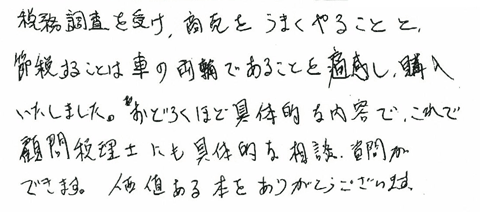 税務調査を受け、商売をうまくやることと、
節税することは車の両輪であることを痛感し、購入
いたしました。おどろくほど具体的な内容で、これで
顧問税理士にも具体的な相談、質問が
できます。価値ある本をありがとうございます。